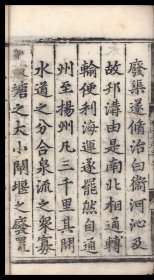 廢渠遂脩治白衞河沁及
故邗溝由是南北相通轉
輸便利海運遂罷然自通
州至揚州凡三千里其間
水道之分合泉流之衆寡
塘之大小閘堰之廢置